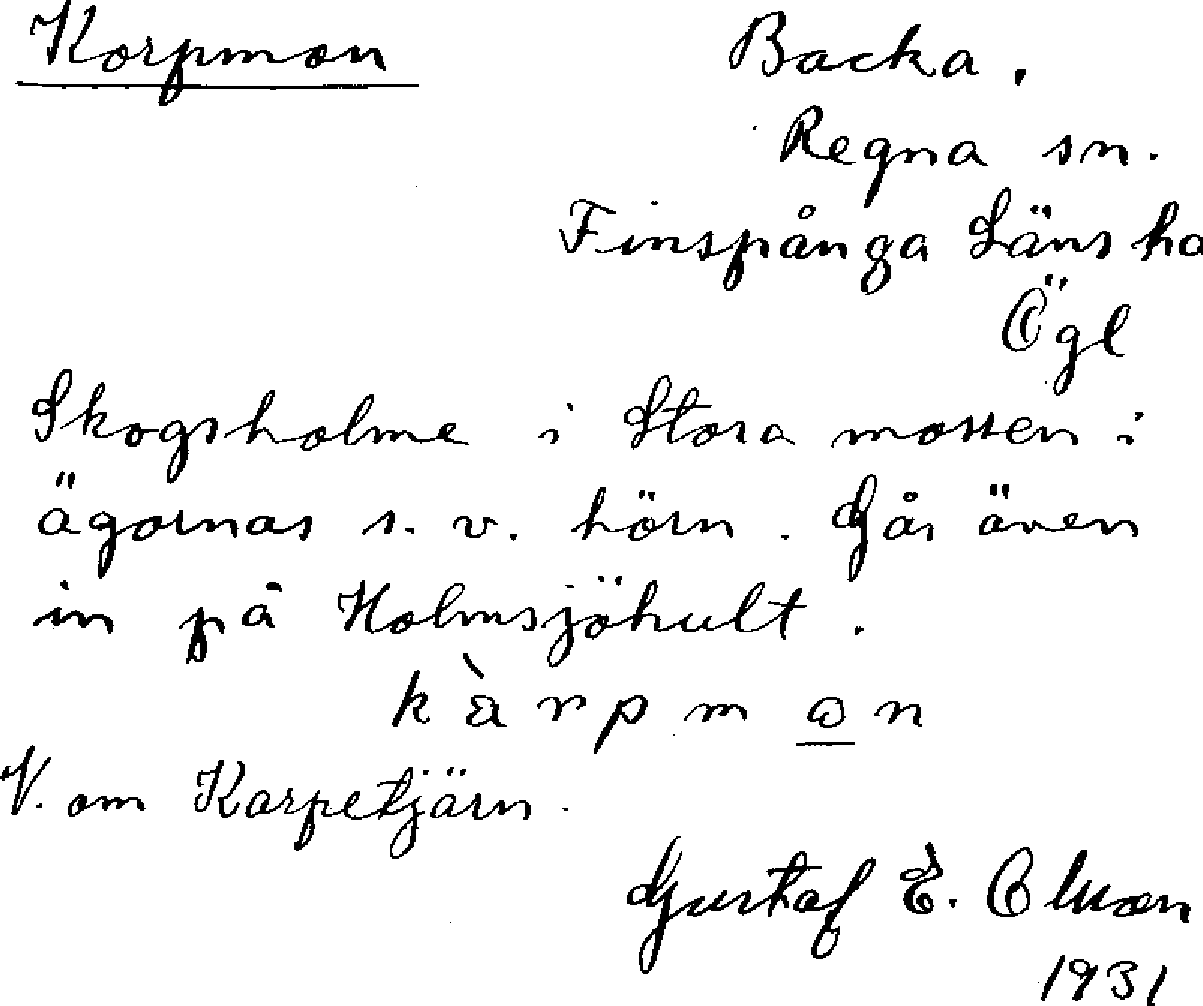 Korpmon
Backa.
Regna sn.
Finspånga Läns hd
Ögl
Skogsholme i Stora mossen i
ägornas s.v. hörn. Går även
in på Holmsjöhult.
kàrpmon
V. om Karpetjärn.
Gustaf E. Olsson
1931